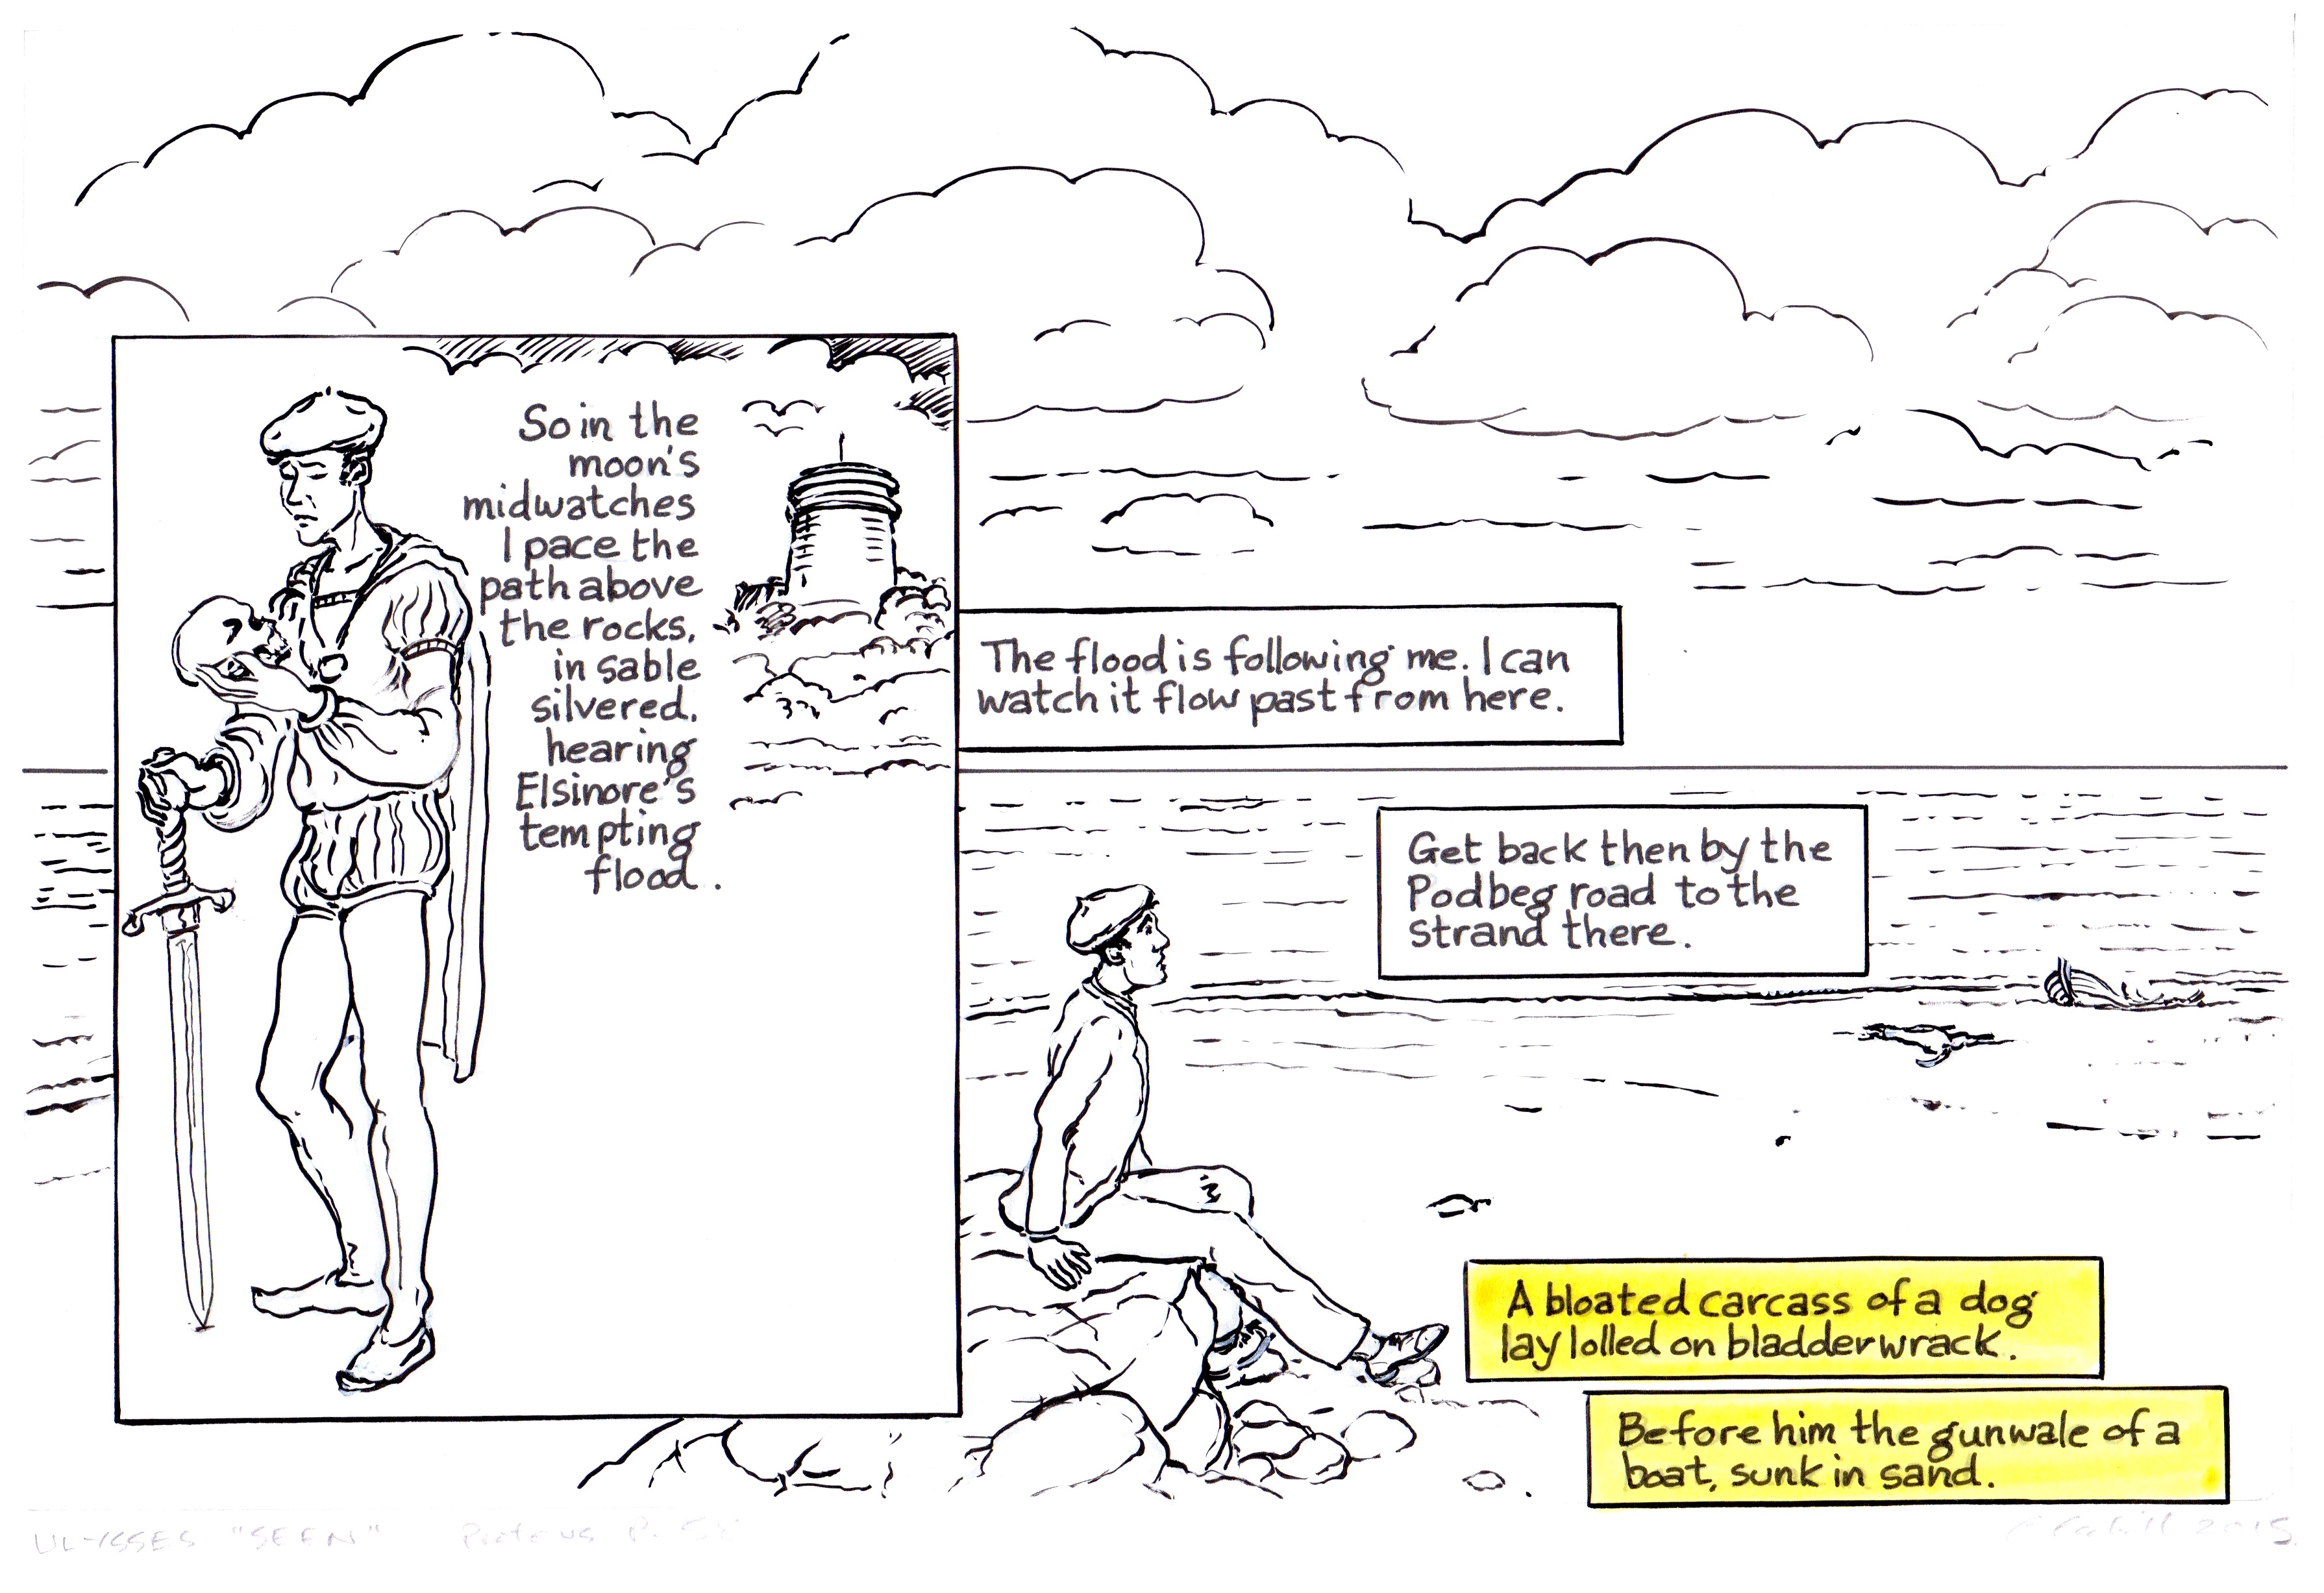 So in the
moon's
midwatches
I pace the
path above
the rocks,
in sable
silvered,
hearing
Elsinore's
tempting
flood.
The flood is following me. I can
watch it flow past from here.
Get back then by the
Podbeg road to the
strand there.
A bloated carcass of a dog
lay lolled on bladderwrack.
Before him the gunwale of a
boat, sunk in sand.
ULYSSES "SEEN" Proteus P.
2015